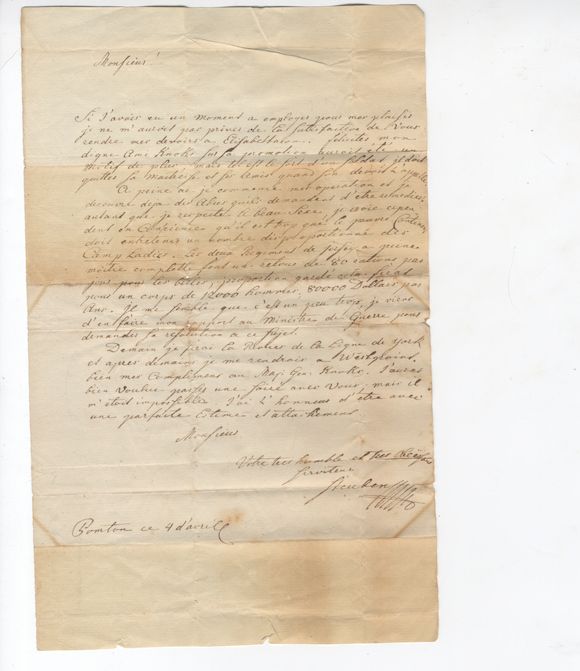 Monsieur!
Si J'avois eu un moment a employer pour mes plaisirs
je ne m'aurois pas privés de la satisfaction de Vous
rendre mes devoirs a Elisabethtown. felicités mon
digne Ami Knoks sur sa promotion
motif de plus, mais tel est le sort d'un soldat, il doit
quitter sa Maitresse et ses amis quand son devoir l'appelle
A peine ai je commencé mes operations et je
decouvre deja des Abus qui demandent d'etre remediés
autant que je respecte le beau Sexe, je crois cepen
dent en Conscience qu'il est trop que le pauvre Continent
doit entretenir un nombre disproportionné des
Camp Ladies. Les deux Regiment de jersey a peine
moitié complette font une retour de 80 rations par
jour pour les belles; proportion gardé cela fera
pour un corps de 12000 hommes, 80000 Dollars par
Anr. Il me semble que c'est un peu trop, je viens
d'en faire mon rapport au Ministre de Guerre pour
demander sa resolution a ce sujet.
Demain je ferai la Muster de la Ligne de York
et apres demain je me rendrai a Westpoint.
bien mes Complimens au Maj: Gen Knoks. J'aurois
bien voulus passer une soiré avec Vous, mais il
m'etoit impossible J'ai l'honneur d'etre avec
une parfaite Estime et attachement
Monsieur
Votre tres humble et tres Obeissant
Serviteur
Steuben
Pomton ce 4 d'avril